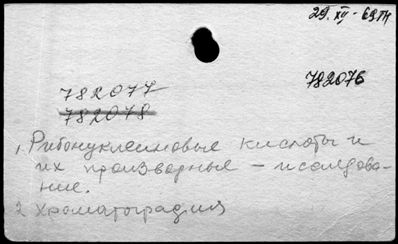 29.XII-69 тп
782076
782077
782078
1. Рибонуклеиновые кислоты и
их производные - исследова-
ние.
2 Хроматография